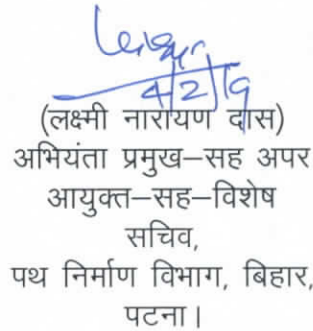 4/2/19
(लक्ष्मी नारायण दास)
अभियंता प्रमुख–सह अपर
आयुक्त–सह–विशेष
सचिव,
पथ निर्माण विभाग, बिहार,
पटना।